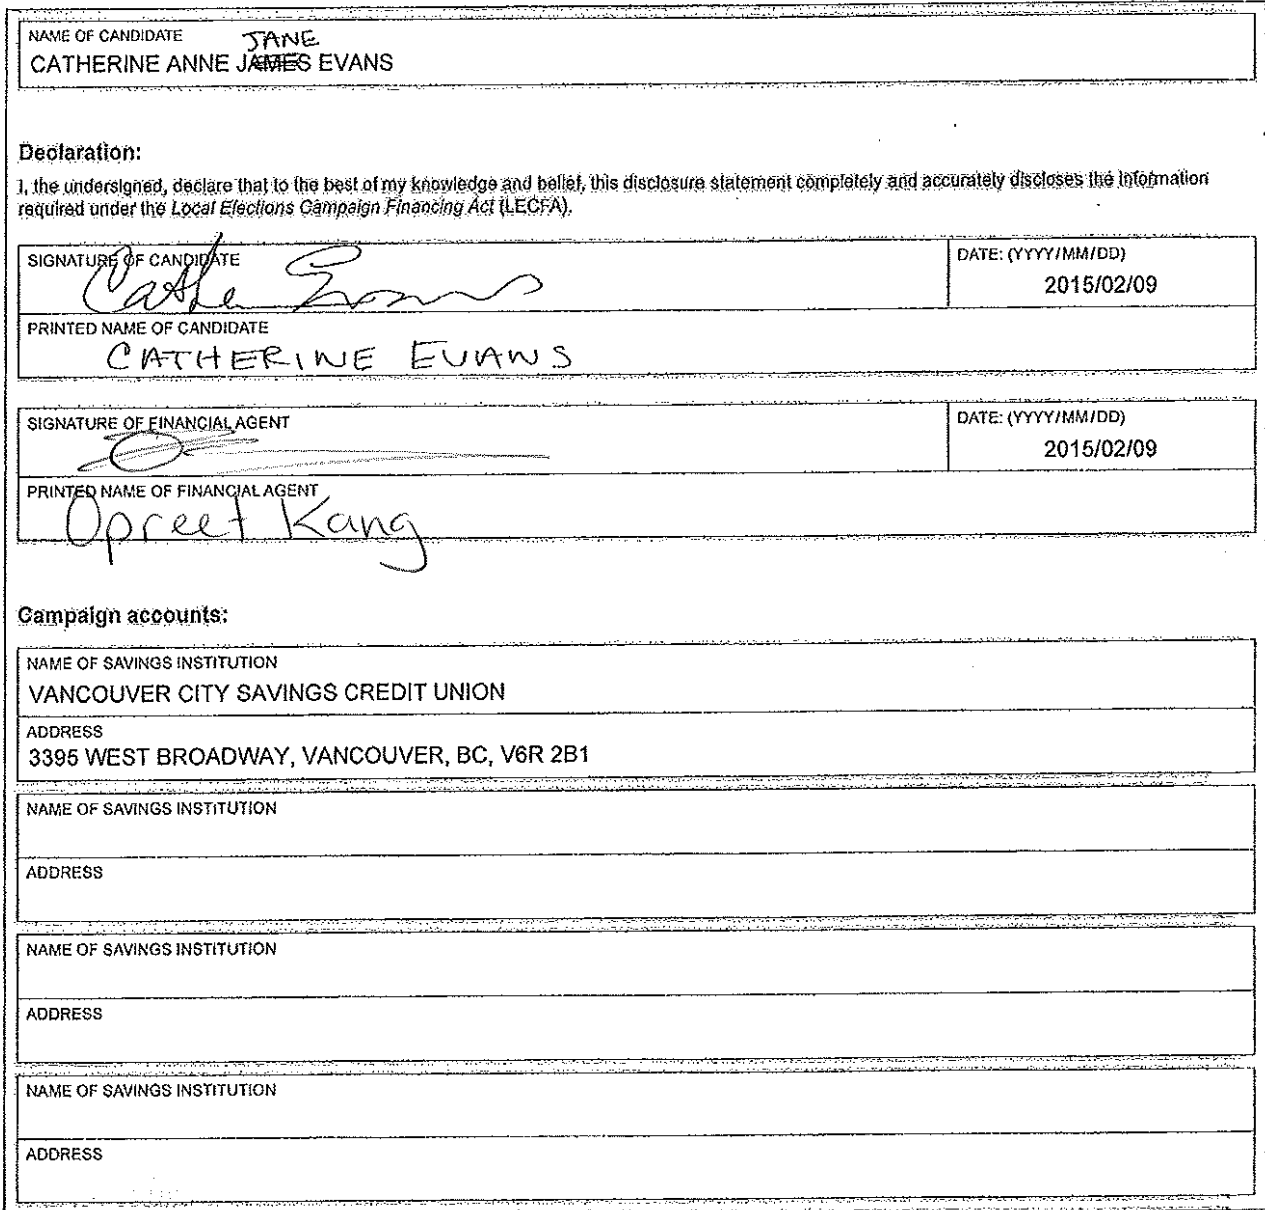 NAME OF CANDIDATE
JANE
CATHERINE ANNE JAMES EVANS
Declaration:
I, the undersigned, declare that to the best of my knowledge and belief, this disclosure statement completely and accurately discloses the information
required under the Local Elections Campaign Financing Act (LECFA).
SIGNATURE OF CANDIDATE
Cathe Evans
DATE: (YYYY/MM/DD)
2015/02/09
PRINTED NAME OF CANDIDATE
CATHERINE EVANS
SIGNATURE OF FINANCIAL AGENT
DATE: (YYYY/MM/DD)
2015/02/09
PRINTED NAME OF FINANCIAL AGENT
Opreet Kang
Campaign accounts:
NAME OF SAVINGS INSTITUTION
VANCOUVER CITY SAVINGS CREDIT UNION
ADDRESS
3395 WEST BROADWAY, VANCOUVER, BC, V6R 2B1
NAME OF SAVINGS INSTITUTION
ADDRESS
NAME OF SAVINGS INSTITUTION
ADDRESS
NAME OF SAVINGS INSTITUTION
ADDRESS